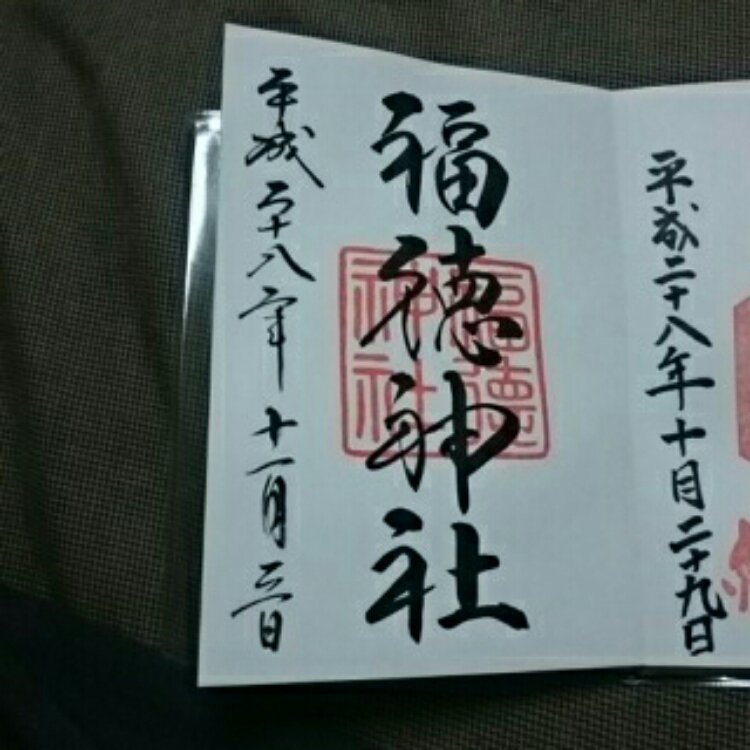 平成二十八年十月二十九日
福徳神社
福德神社
平成二十八年十一月三日